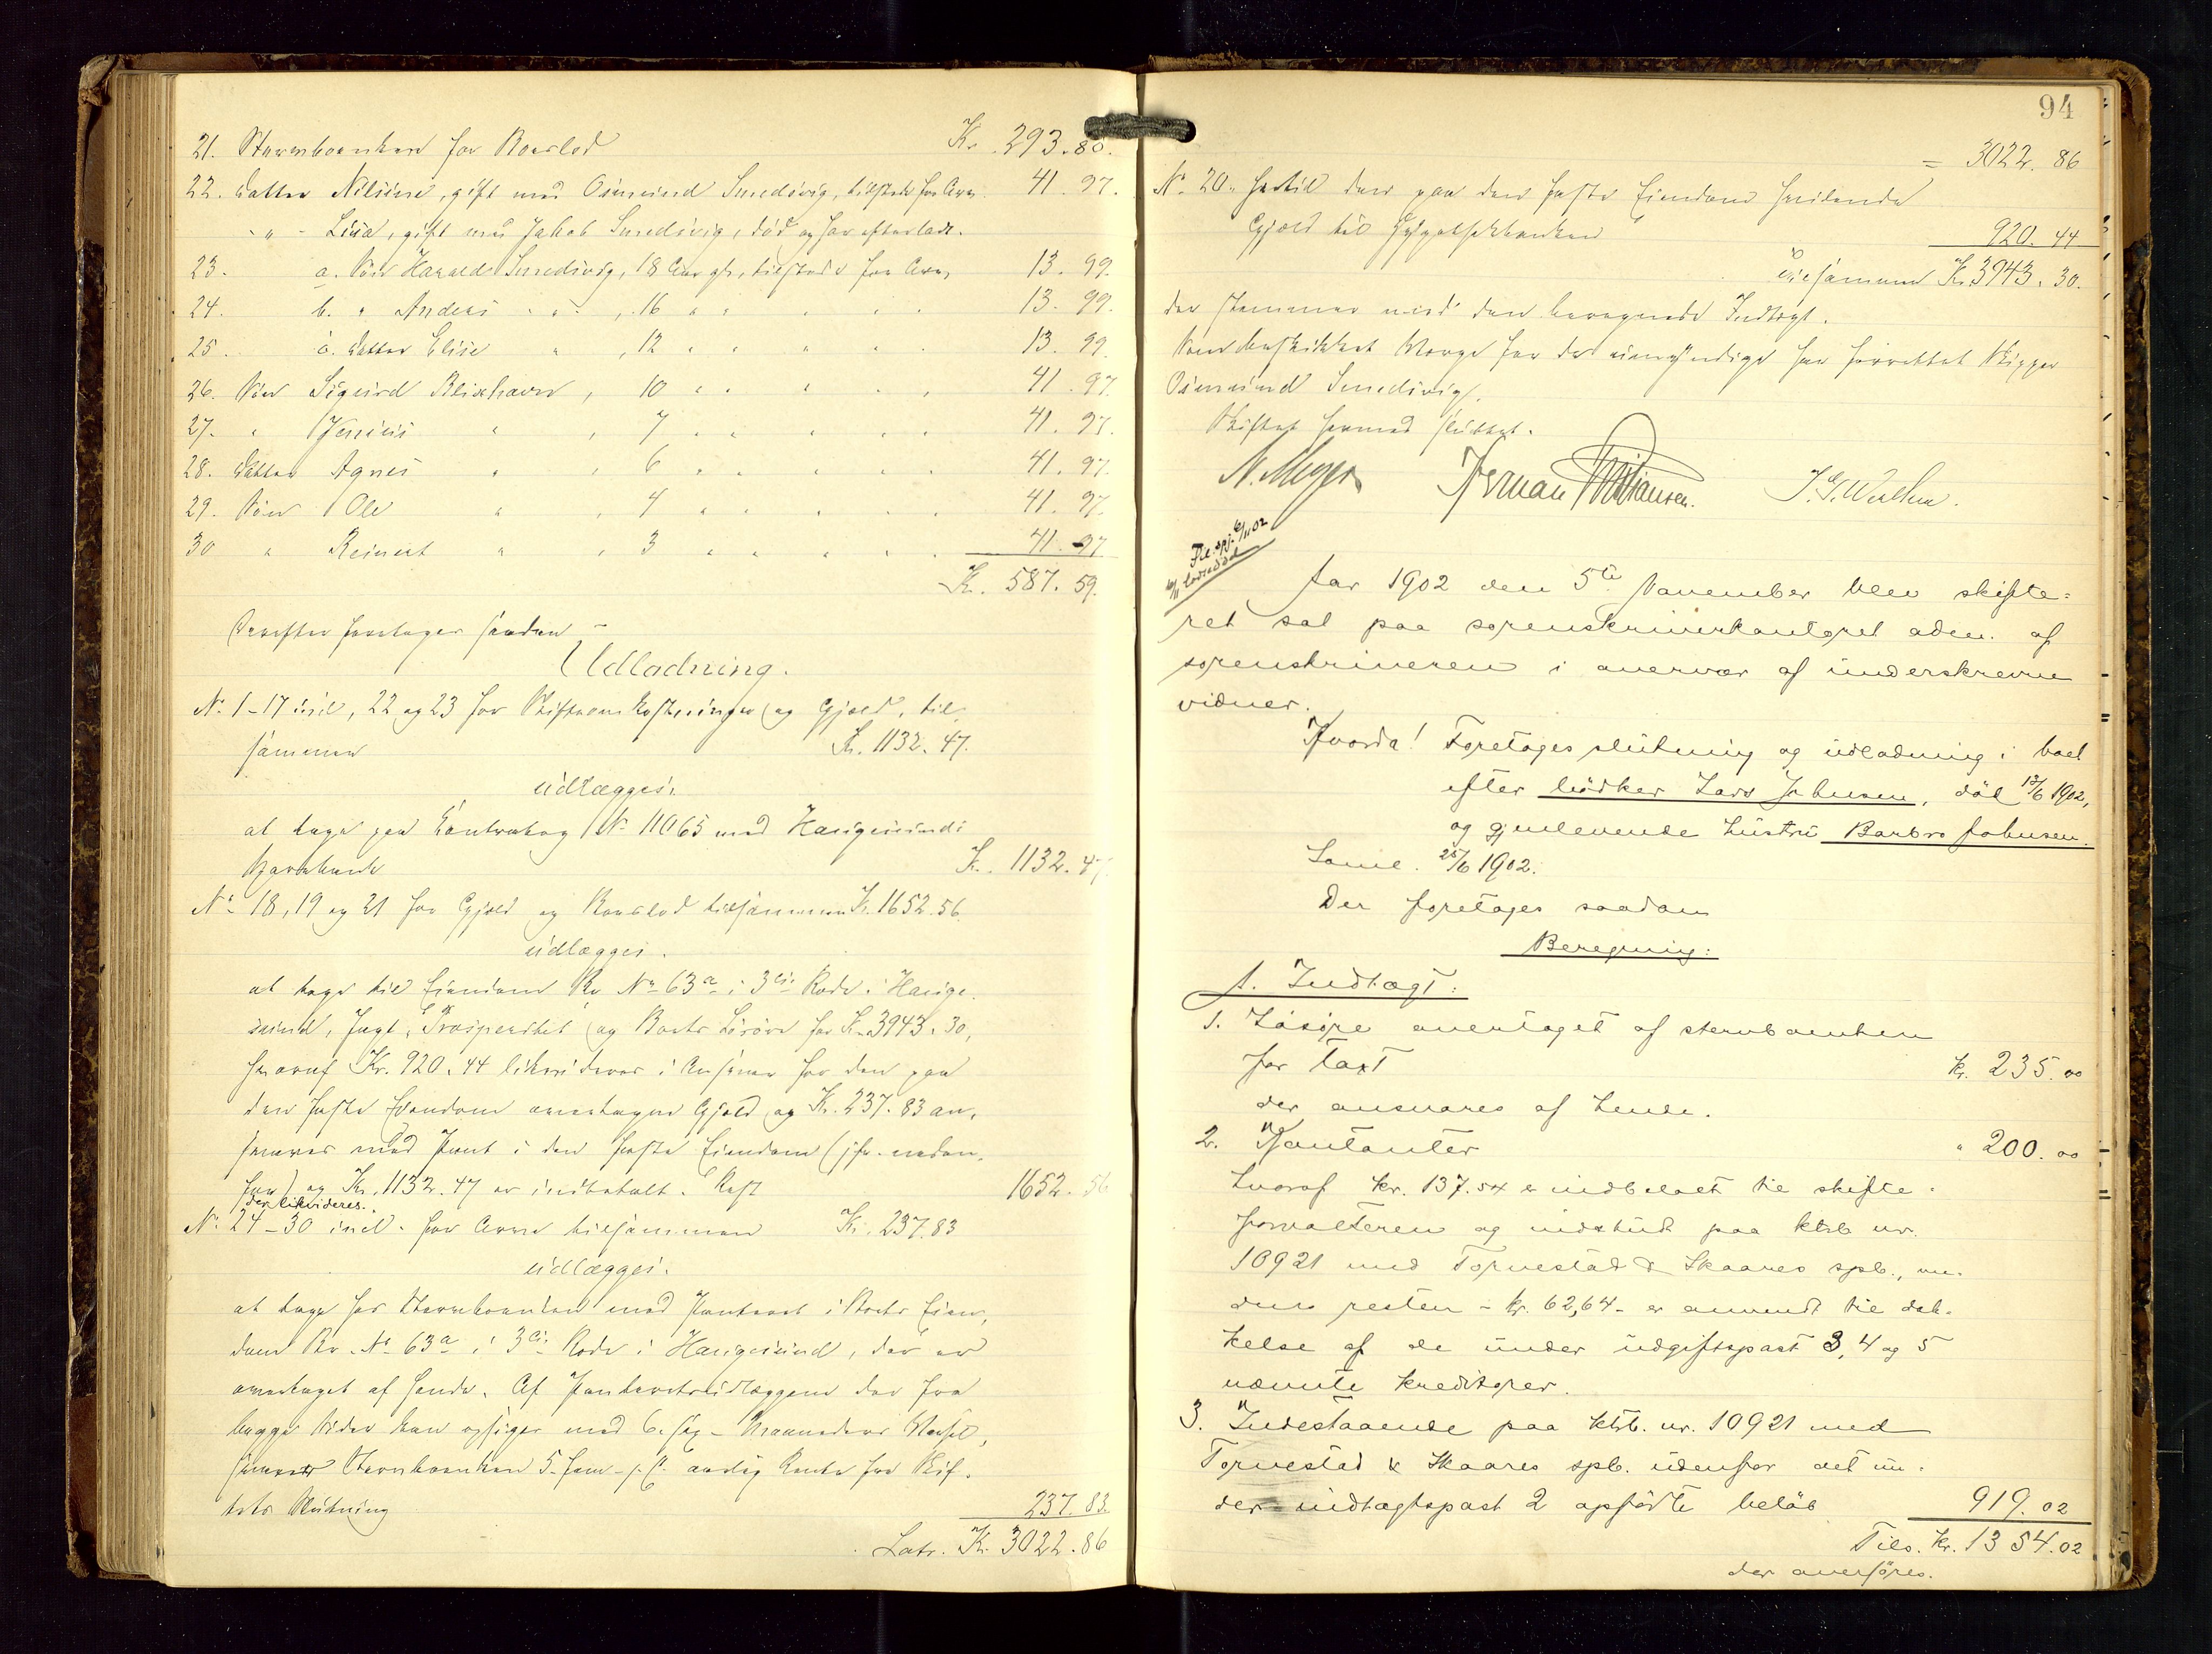 21. Stervboenken for Boeslod Kr. 293.80.
22. Datter Nilsine, gift med Osmund Smedsvig, tilstede for Arv. 41.97.
-"- Lina, gift med Jakob Smedsvig, død og har efterladt.
23. a. Søn Harald Smedsvig, 18 Aar gl., tilstede for Arv, 13.99.
24. b. " Anders " " , 16 " " " " " 13.99.
25. c. Datter Elise " , 12 " " " " " 13.99
26. Søn Sigurd Blixhavn, 10 " " " " 41.97.
27. " Jenius " , 7 " " " " 41.97.
28. Datter Agnes " , 6 " " " " 41.97.
29. Søn Ole " , 4 " " " " 41.97.
30 " Reinert " , 3 " " " " 41.97
Kr. 587.59.
Derefter foretages saadan
Udlodning.
No 1-17 incl, 22 og 23 for Skifteomkostninger og Gjæld, til-
sammen Kr. 1132.47.
udlægges:
at tage paa Contrabog No 11065 med Haugesunds
Sparebank Kr. 1132.47
No 18, 19 og 21 for Gjæld og Boeslod tilsammen Kr. 1652.56.
udlægges.
at tage til Eiendom Br No 63a i 3die Rode i Hauge-
sund, Jagt "Prosperitet" og Boets Løsøre for Kr. 3943.30,
hvoraf Kr. 920.44 likvideres i Ansvar for den paa
den faste Eiendom overtagne Gjæld og Kr. 237.83 an-
svares med Pant i den faste Eiendom (jfr. neden-
for) og Kr. 1132.47 er indbetalt. Rest 1652.56
der likvideres.
No 24-30 incl. for Arv tilsammen Kr. 237.83
udlægges.
at tage hos Stervboenken med Panteret i Boets Eien-
dom Br. No 63a i 3die Rode i Haugesund, der er
overtaget af hende. Af Panteretsudlæggene der fra
begge Sider kan opsiges med 6-sex-Maaneders Varsel,
svarer Stervboenken 5-fem-p.Ct. aarlig Rente fra Skif-
tets Slutning 237.83.
Latr. Kr. 3022.86
94
= 3022.86
No 20. hertil den paa den faste Eiendom hvilende
Gjæld til Hypothekbanken 920.44
Tilsammen Kr. 3943.30.
der stemmer med den beregnede Indtægt.
Som beskikket Værge for de umyndige har forrettet Skipper
Osmund Smedsvig.
Skiftet hermed sluttet.
N. Meyer Herman J. G. Wathne.
6/11 02
Aar 1902 den 5te November blev skifte-
ret sat paa sorenskriverkontoret adm. af
sorenskriveren i overvær af underskrevne
vidner.
Hvorda! Foretoges slutning og udlodning i boet
efter bødker Lars Johnsen, død 13/6 1902,
og gjenlevende hustru Barbro Johnsen.
Saml. 25/6 1902.
Der foretoges saadan
Beregning:
A. Indtægt:
1. Løsøre overtaget af stervboenken
for taxt kr. 235.00
der ansvares af hende.
2. Kontanter " 200.00
hvoraf kr. 137.54 er indbetalt til skifte-
forvalteren og indskudt paa ktrb nr.
10921 med Torvestad & Skaares spb., me-
dens resten - kr. 62,64 - er anvendt til dæk-
kelse af de under udgiftspost 3, 4 og 5
nævnte kreditorer.
3. Indestaaende paa ktrb. nr. 10921 med
Torvestad & Skaares spb. udenfor det un-
der indtægtspost 2 opførte beløb 919.02
Tils. kr. 1354.02
der overføres.